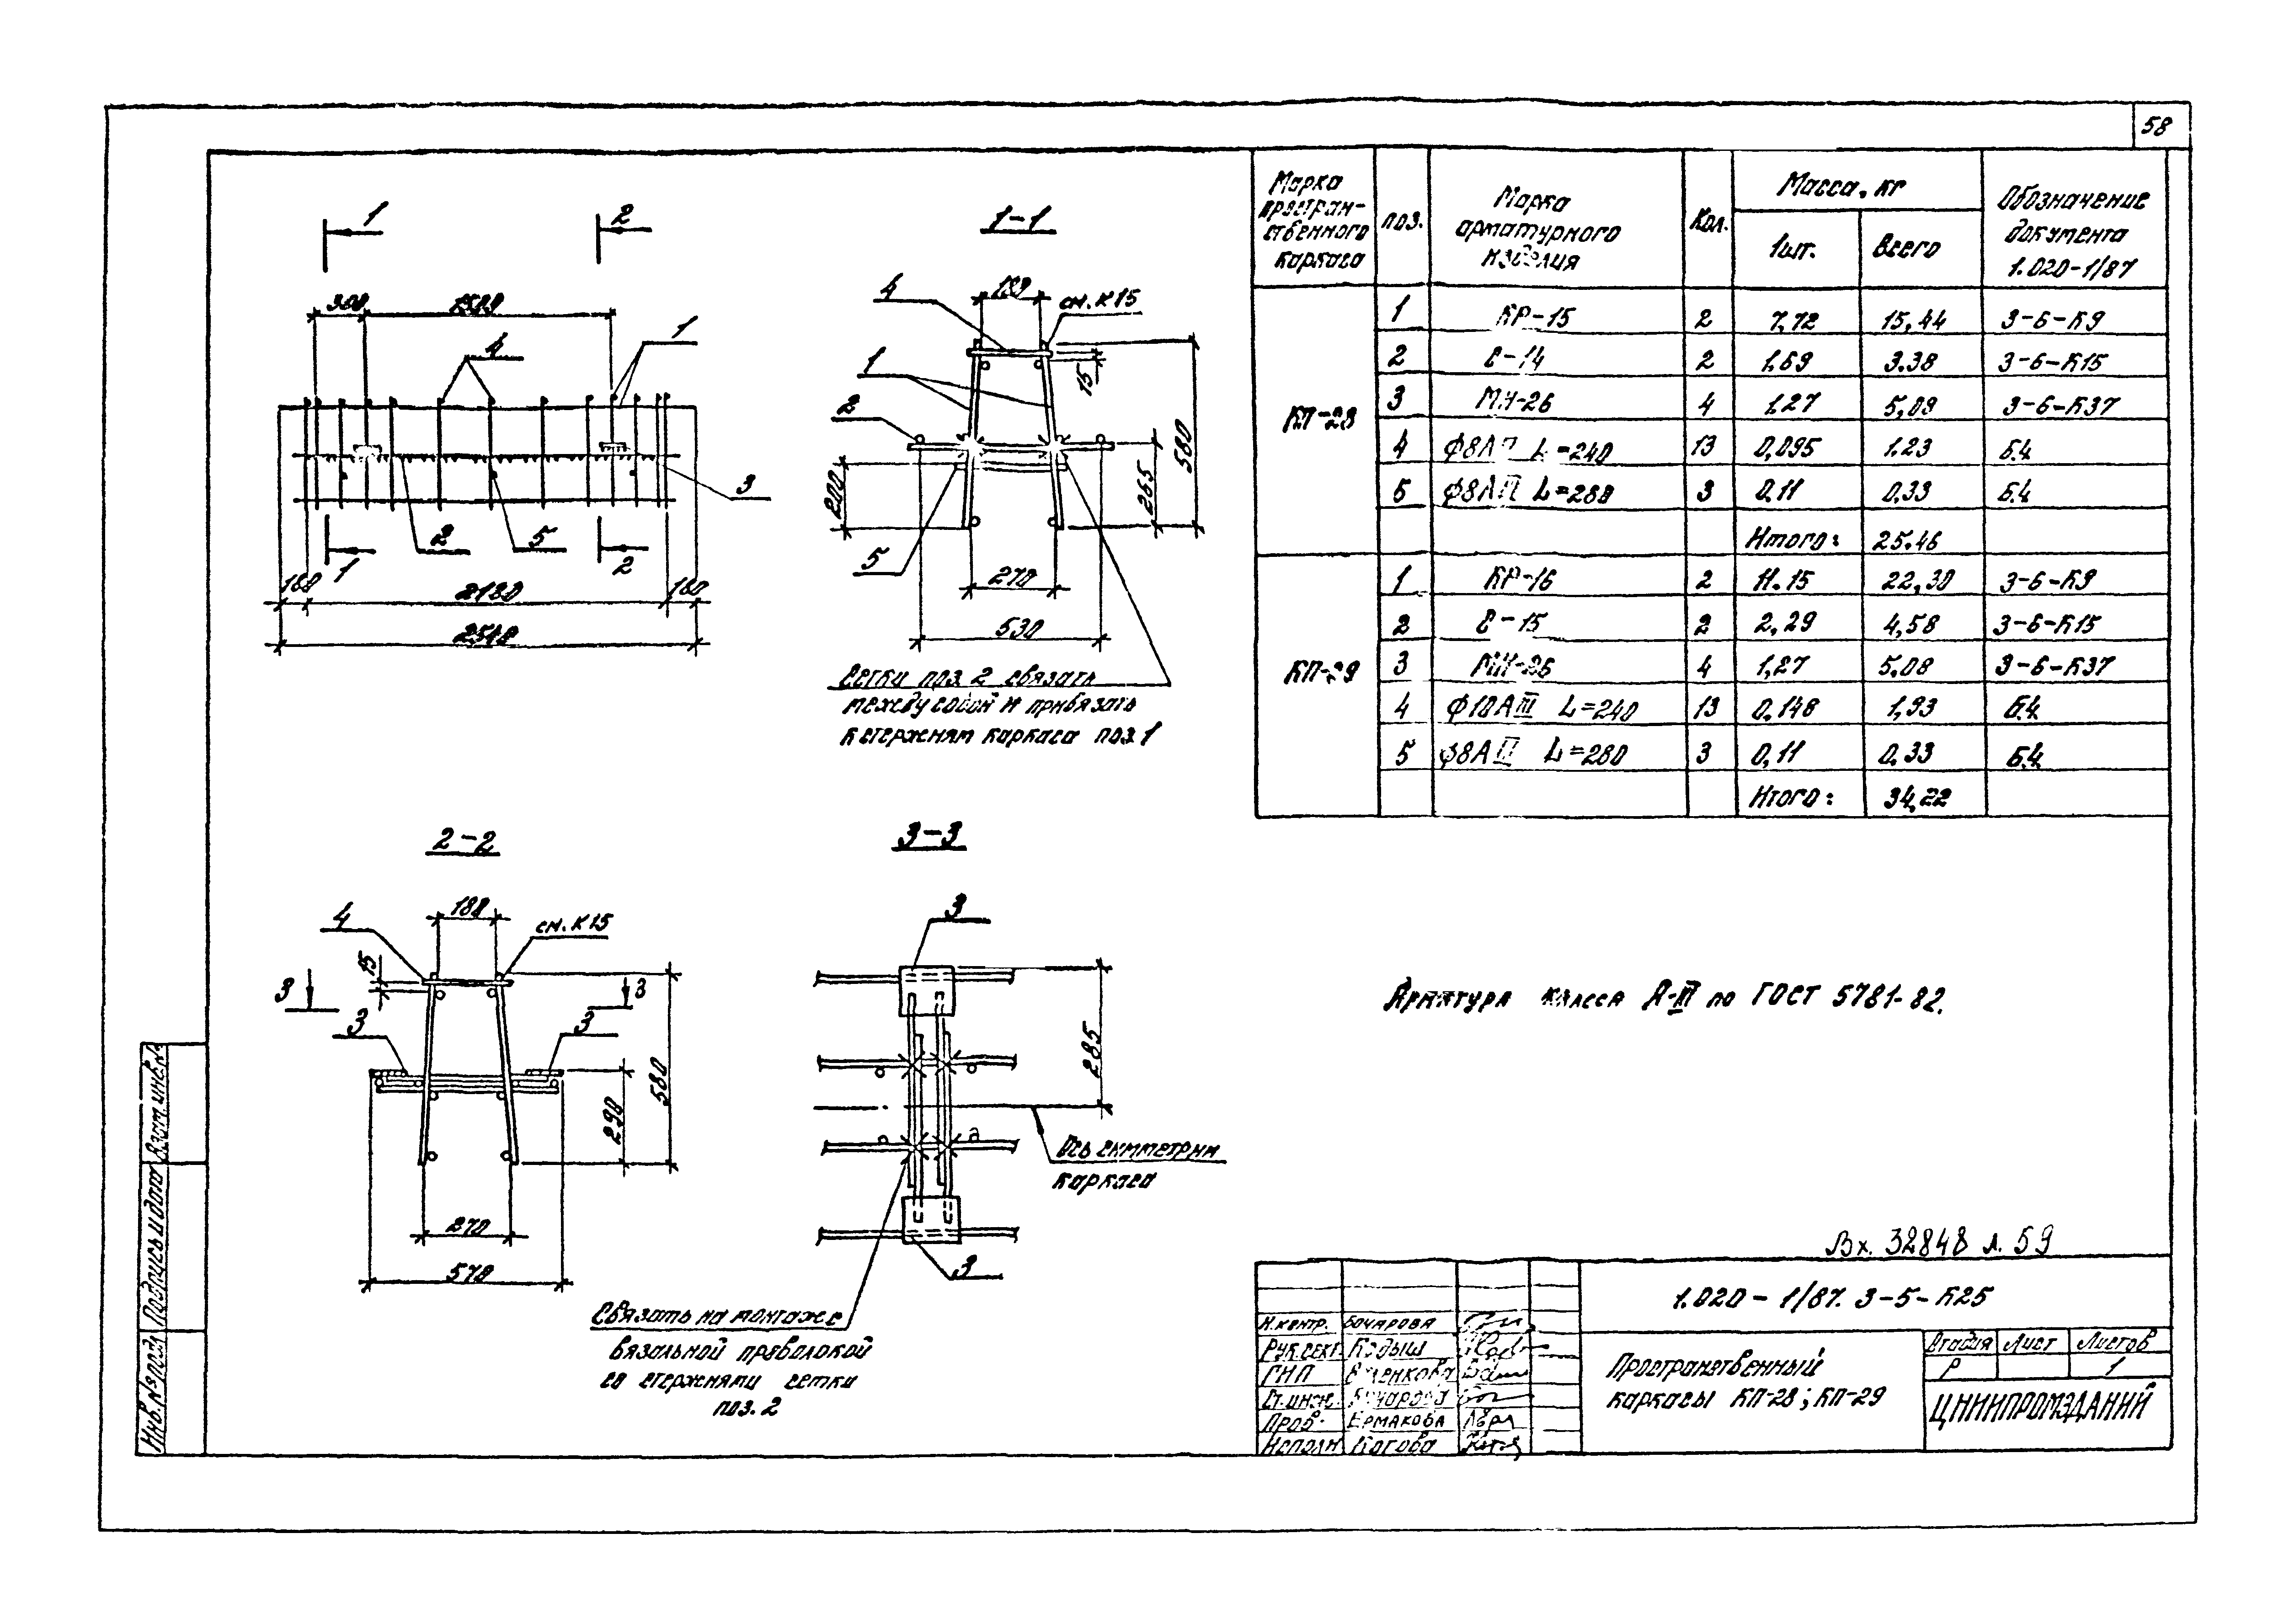 58
1 2
300 1500
4 1
3
2 5
1 2
180 2180 180
2540
1-1
4 180 см. К15
1
15
2
580
200 265
5
270
530
Сетки поз. 2 связать
между собой и привязать
к стержням каркаса поз. 1
2-2
180
4 см. К15
15
3 3
3 3
580
290
270
570
3-3
3
285
Ось симметрии
каркаса
3
Связать на монтаже
вязальной проволокой
со стержнями сетки
поз. 2
Марка пространственного каркаса поз. Марка арматурного изделия Кол. Масса, кг Обозначение документа 1.020-1/87
1шт. Всего
КП-28
1 КР-15 2 7,72 15,44 3-6-К9
2 С-14 2 1,69 3.38 3-6-К15
3 МН-26 4 1,27 5,09 3-6-К37
4 ф8А L=240 13 0,095 1.23 Б.4
5 ф8А L=280 3 0,11 0,33 Б.4
Итого: 25.46
КП-29
1 КР-16 2 11.15 22,30 3-6-К9
2 С-15 2 2,29 4,58 3-6-К15
3 МН-26 4 1,27 5.08 3-6-К37
4 ф10АIII L=240 13 0,148 1,93 Б.4
5 ф8А L=280 3 0,11 0,33 Б.4
Итого: 34,22
Арматура класса А-III по ГОСТ 5781-82.
Вх. 32848 л. 59
1.020-1/87. 3-5-К25
Н.контр. Бочарова
Рук.сект. Кодыш
ГИП
Ст.инж. Бочарова
Пров. Ермакова
Исполн. Котова
Пространственный
каркасы КП-28; КП-29
Стадия Лист Листов
Р 1
ЦНИИПРОМЗДАНИЙ
Инв.№ подл. Подпись и дата Взам.инв.№